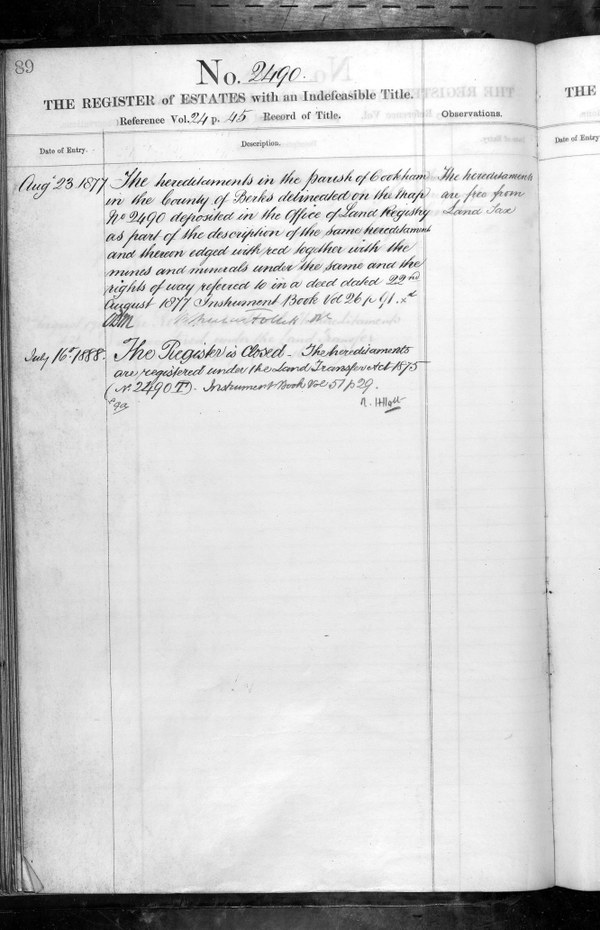 89
No. 2490.
THE REGISTER of ESTATES with an Indefeasible Title.
Reference Vol. 24 p. 45 Record of Title.
Observations.
Date of Entry.
Description.
Augt 23 1877
The hereditaments in the parish of Cookham
in the County of Berks delineated on the map
No 2490 deposited in the Office of Land Registry
as part of the description of the same hereditament
and thereon edged with red together with the
mines and minerals under the same and the
rights of way referred to in a deed dated 22nd
August 1877 Instrument Book Vol 26 p 91.
The hereditaments
are free from
Land Tax
July 16th 1888.
The Register is Closed - The hereditaments
are registered under the Land Transfer Act 1875
(No. 2490 ) - Instrument Book Vol 57 p 29.
THE
Date of Entry